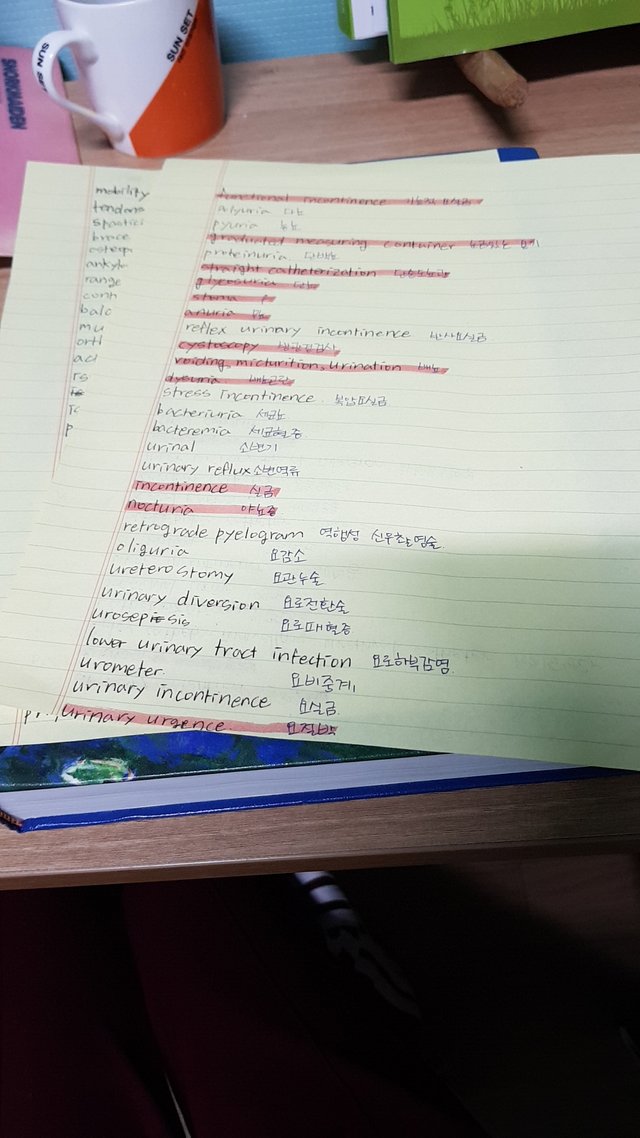 SUN SET
SUN SUN
mobility
tendons
spastici
brace
osteop
ankylo
range
cont
balc
mu
orth
acl
rs
p
functional incontinence 기능적 요실금
polyuria 다뇨
pyuria 농뇨
graduated measuring container 눈금있는 용기
proteinuria 단백뇨
straight catheterization 단순도뇨관
glycosuria 당뇨
stoma
anuria 무뇨
reflex urinary incontinence 반사요실금
cystoscopy 방광경검사
voiding, micturition, urination 배뇨
dysuria 배뇨곤란
stress incontinence 복압요실금
bacteriuria 세균뇨
bacteremia 세균혈증
urinal 소변기
urinary reflux 소변역류
incontinence 실금
nocturia 야뇨증
retrograde pyelogram 역행성 신우촬영술
oliguria 요감소
ureterostomy 요관누술
urinary diversion 요로전환술
urosepsis 요로패혈증
lower urinary tract infection 요로하부감염
urometer 요비중계
urinary incontinence 요실금
urinary urgence 요절박